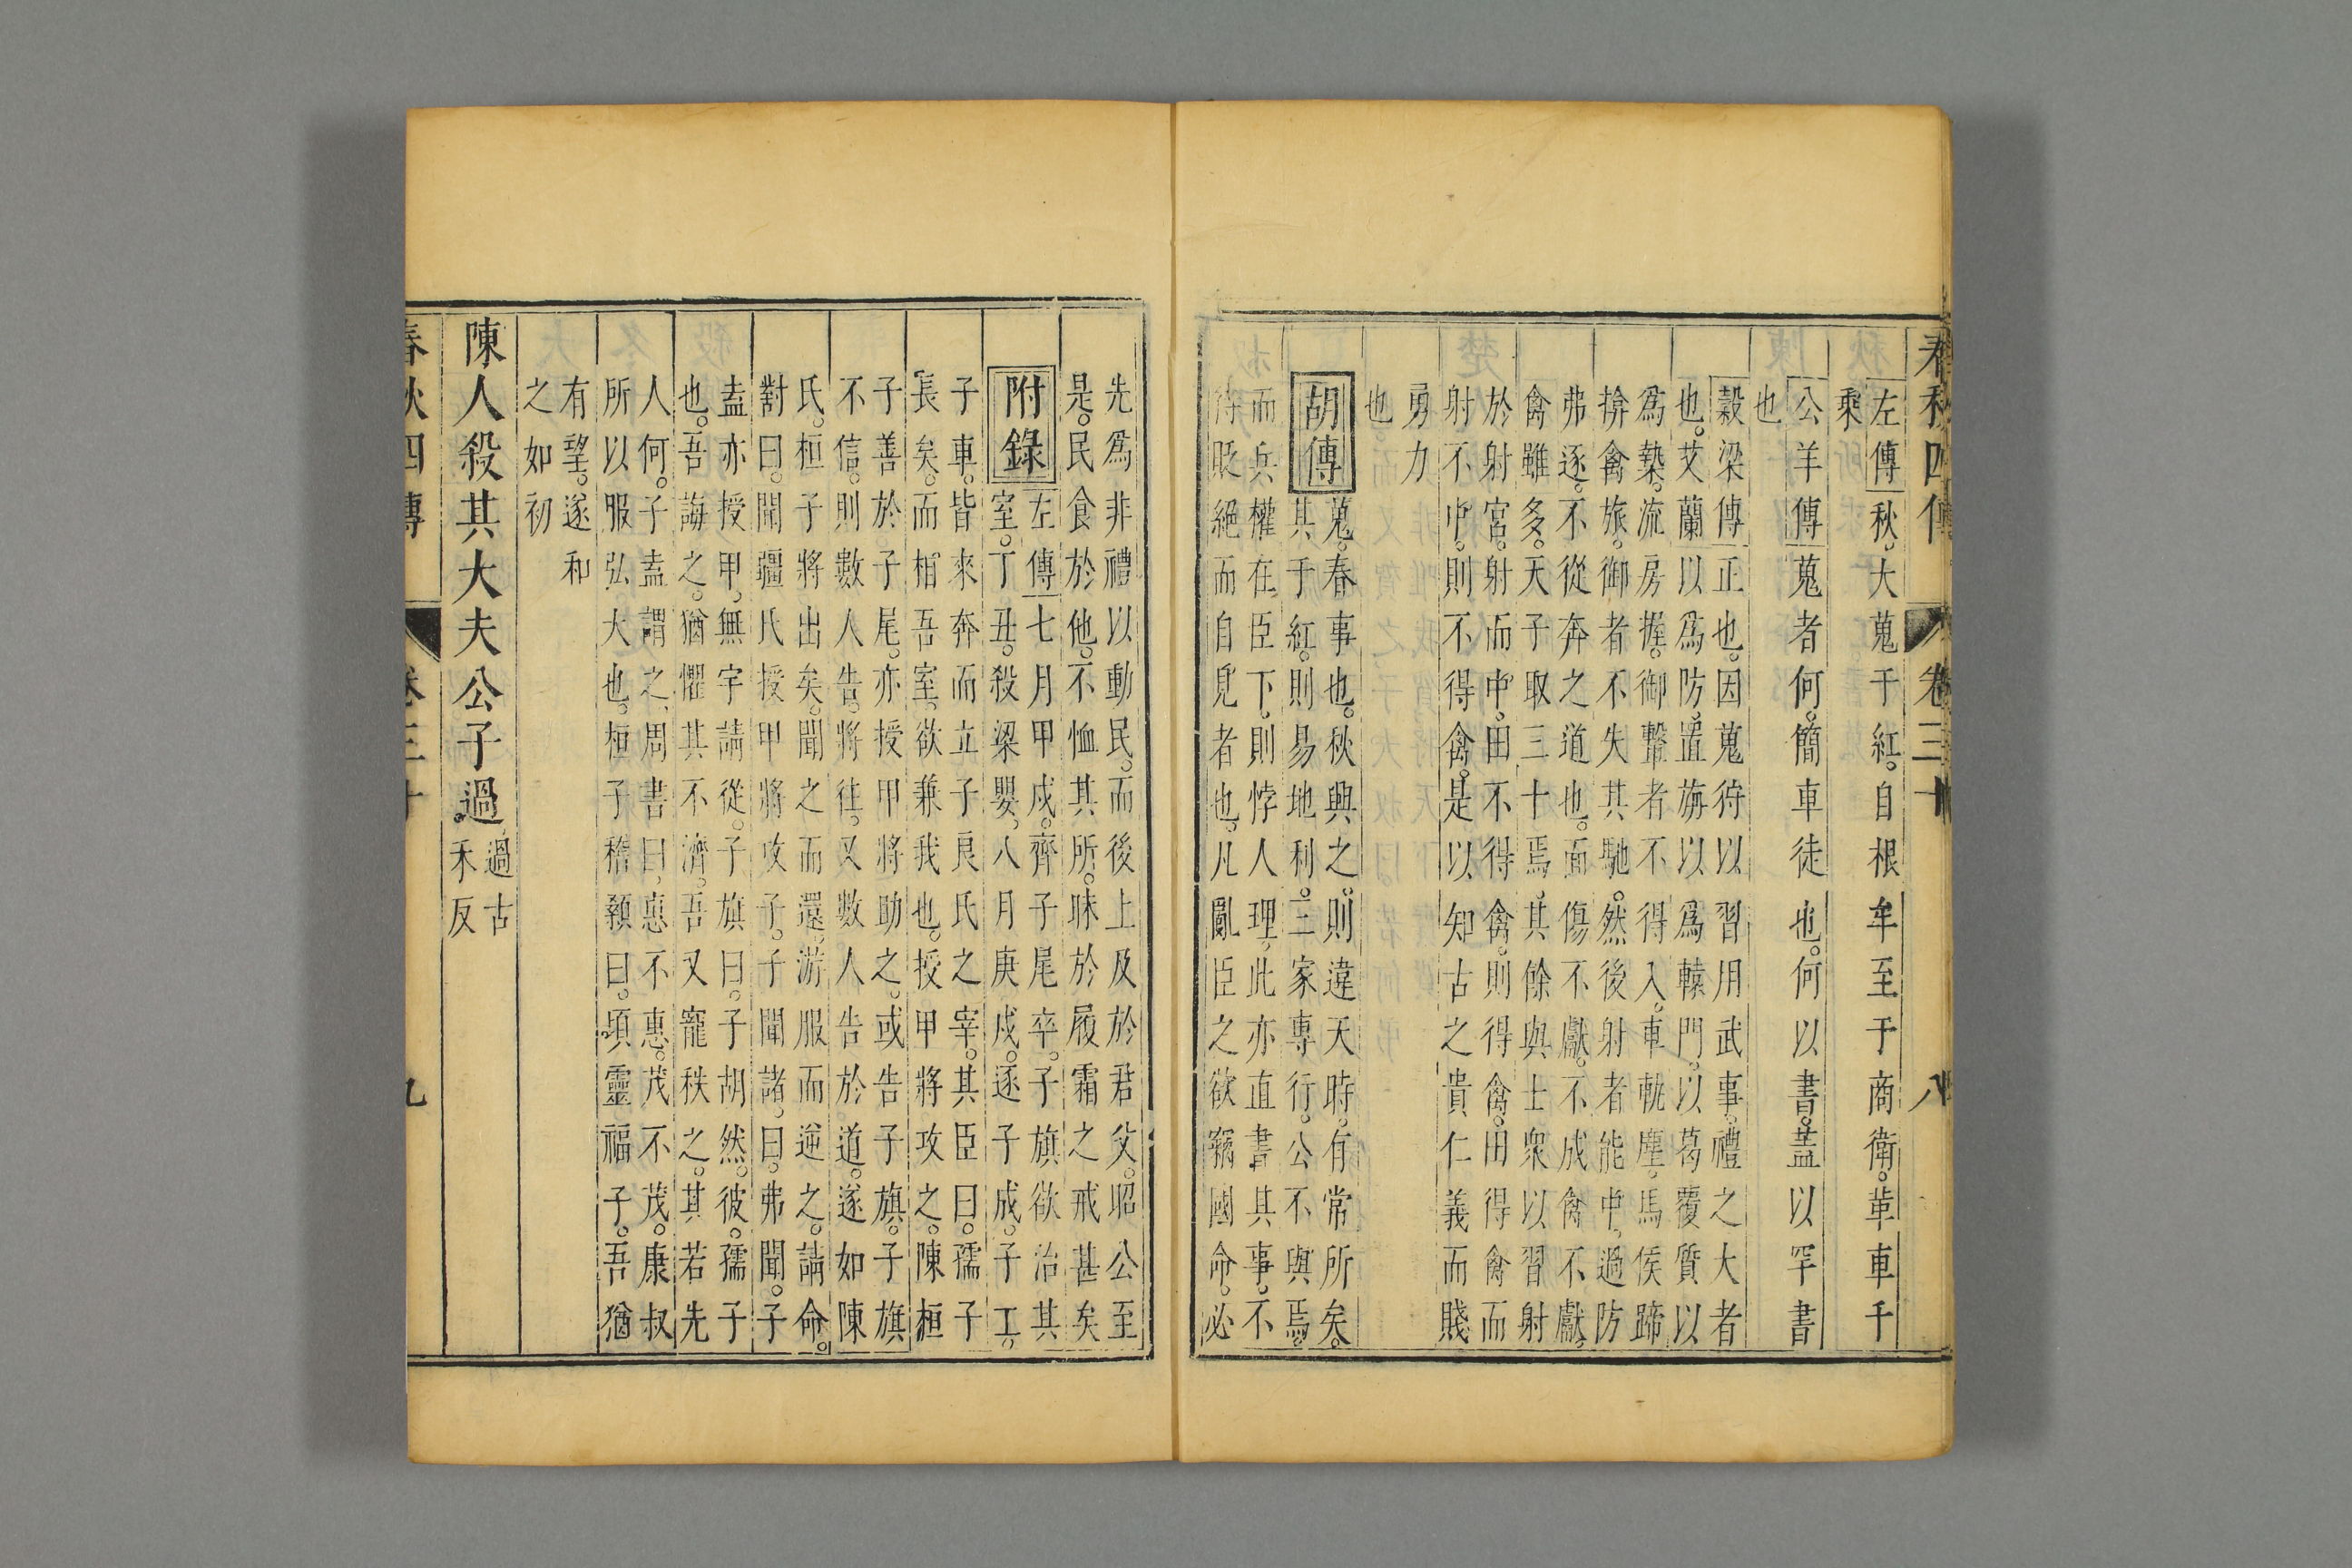 春秋四傳 卷三十 八
左傳秋大蒐于紅自根牟至于商衛革車千
乘
公羊傳蒐者何簡車徒也何以書蓋以罕書
也
穀梁傳正也因蒐狩以習用武事禮之大者
也艾蘭以爲防置旃以爲轅門以葛覆質以
爲槷流旁握御轚者不得入車軌塵馬侯蹄
揜禽旅御者不失其馳然後射者能中過防
弗逐不從奔之道也面傷不獻不成禽不獻
禽雖多天子取三十焉其餘與士衆以習射
於射宮射而中田不得禽則得禽田得禽而
射不中則不得禽是以知古之貴仁義而賤
勇力
也
胡傳
蒐春事也秋興之則違天時有常所矣
其于紅則易地利三家專行公不與焉
而兵權在臣下則悖人理此亦直書其事不
待貶絕而自見者也凡亂臣之欲竊國命必
先爲非禮以動民而後上及於君父昭公至
是民食於他不恤其所昧於履霜之戒甚矣
附錄
左傳七月甲戌齊子尾卒子旗欲治其
室丁丑殺梁嬰八月庚戌逐子成子工
子車皆來奔而立子良氏之宰其臣曰孺子
長矣而相吾室欲兼我也授甲將攻之陳桓
子善於子尾亦授甲將助之或告子旗子旗
不信則數人告將往又數人告於道遂如陳
氏桓子將出矣聞之而還游服而逆之請命
對曰聞疆氏授甲將攻子子聞諸曰弗聞子
盍亦授甲無宇請從子旗曰子胡然彼孺子
也吾誨之猶懼其不濟吾又寵秩之其若先
人何子盍謂之周書曰惠不惠茂不茂康叔
所以服弘大也桓子稽顙曰頃靈福子吾猶
有望遂和
之如初
陳人殺其大夫公子過
過古
禾反
春秋四傳 卷三十 九